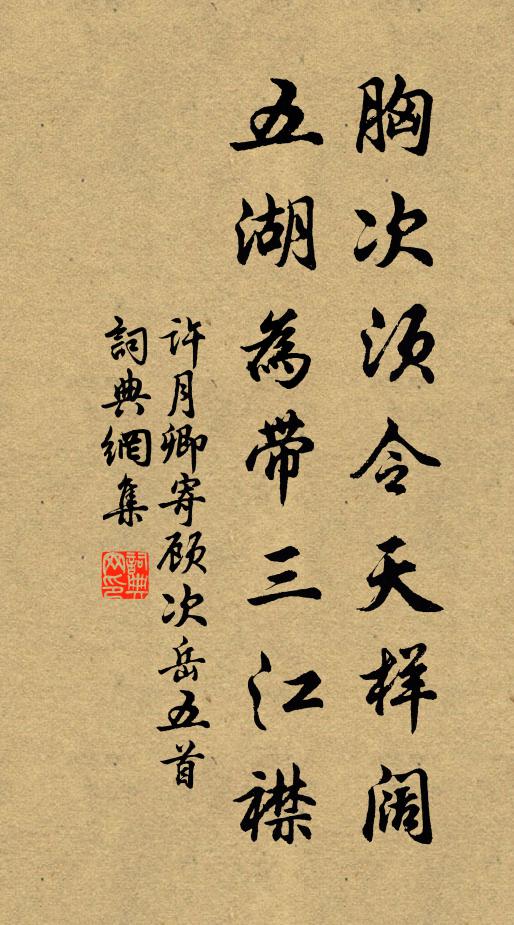 胸次须令天样阔
五湖為带三江襟
许月卿寄顾次岳五首
詞典網集
詞典網印